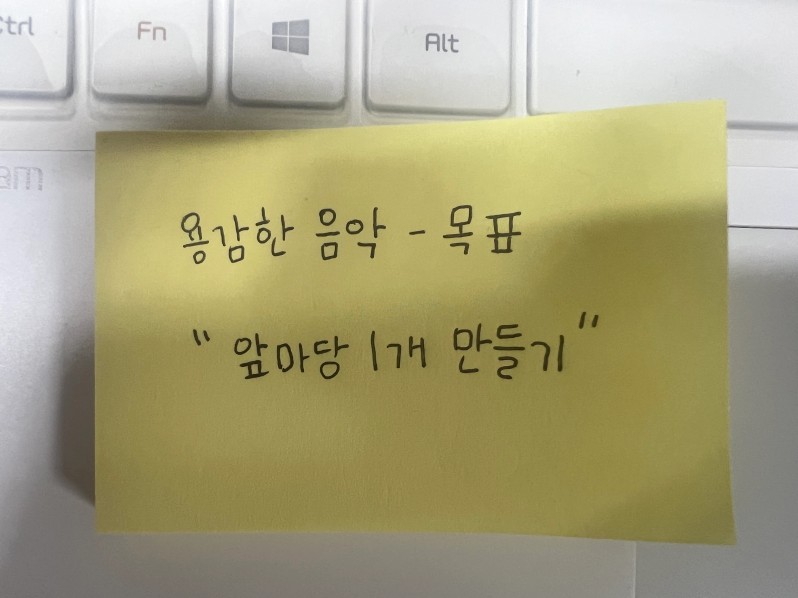 Ctrl Fn Alt
am
용감한 음악 - 목표
" 앞마당 1개 만들기 "